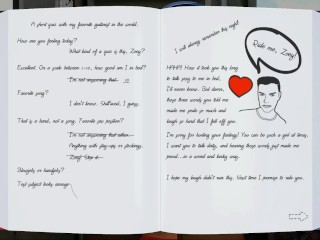 A short quiz with my favorite guitarist in the world.
How are you feeling today?
What kind of a quiz is this, Zoey?
Excellent. On a scale between 1-10, how good am I in bed?
I'm not answering that. 10
Favorite song?
I don't know. Still loved, I guess.
That is a band, not a song. Favorite sex position?
I'm not answering that either.
Anything with slap-ups or
Zoey! Stop it...
or handjob?
Test subject looks annoyed
I will always remember this night!
Ride me, Zoey!
HAHA! How it took you this long
to talk pussy to me in bed,
I'll never know. But damn,
those three words you told me
made me smile so much and
laugh so hard that I fell off you.
I'm sorry for hurting your feelings! You can be such a girl at times.
I want you to talk dirty, and hearing those words just made me
proud...in a weird and kinky way.
I hope my laugh didn't ruin this. Next time I promise to ride you.